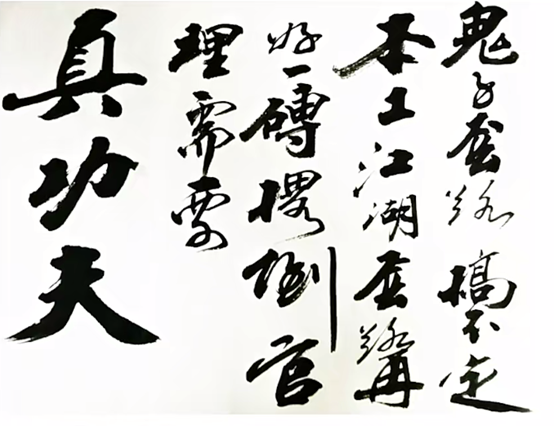 鬼子套路搞不定
本土江湖套路再
好一磚撂倒官
理需要
真功夫